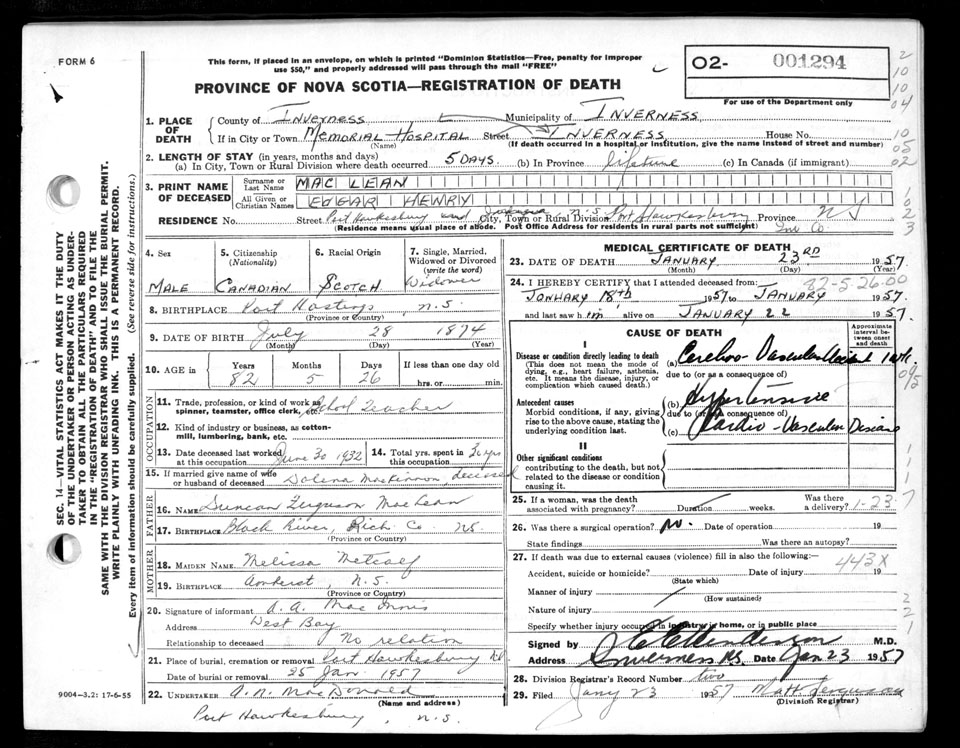 FORM 6
This form, if placed in an envelope, on which is printed "Dominion Statistics—Free, penalty for improper
use $50," and properly addressed will pass through the mail "FREE"
O2- 001294
For use of the Department only
PROVINCE OF NOVA SCOTIA—REGISTRATION OF DEATH
1. PLACE OF DEATH
County of INVERNESS Municipality of INVERNESS
If in City or Town MEMORIAL HOSPITAL Street INVERNESS House No.
(Name) (If death occurred in a hospital or institution, give the name instead of street and number)
2. LENGTH OF STAY (in years, months and days)
(a) In City, Town or Rural Division where death occurred 5 DAYS (b) In Province lifetime (c) In Canada (if immigrant)
3. PRINT NAME OF DECEASED
Surname or Last Name MAC LEAN
All Given or Christian Names EDGAR HENRY
RESIDENCE No. Street Port Hawkesbury City, Town or Rural Division n.s. Port Hawkesbury Province N S
(Residence means usual place of abode. Post Office Address for residents in rural parts not sufficient) Inv Co
4. Sex 5. Citizenship (Nationality) 6. Racial Origin 7. Single, Married, Widowed or Divorced (write the word)
MALE CANADIAN SCOTCH Widower
8. BIRTHPLACE Port Hastings, n.s.
(Province or Country)
9. DATE OF BIRTH July 28 1874
(Month) (Day) (Year)
10. AGE in Years Months Days If less than one day old
82 5 26 hrs. or min.
OCCUPATION
11. Trade, profession, or kind of work as
spinner, teamster, office clerk, etc. School Teacher
12. Kind of industry or business, as cotton-
mill, lumbering, bank, etc.
13. Date deceased last worked at this occupation June 30 1932 14. Total yrs. spent in this occupation 30 yrs
15. If married give name of wife or husband of deceased Dolena MacKinnon deceased
FATHER
16. NAME Duncan Ferguson MacLean
17. BIRTHPLACE Black River, Rich Co NS
(Province or Country)
MOTHER
18. MAIDEN NAME Melissa Metcalf
19. BIRTHPLACE Amherst, N.S.
(Province or Country)
20. Signature of informant A. A. Mac Innis
Address West Bay
Relationship to deceased No relation
21. Place of burial, cremation or removal Port Hawkesbury NS
Date of burial or removal 25 Jan. 1957
22. UNDERTAKER A. N. MacDonald
(Name and address)
Port Hawkesbury, n.s.
MEDICAL CERTIFICATE OF DEATH
23. DATE OF DEATH JANUARY 23RD 1957
(Month) (Day) (Year)
82-5-26.00
24. I HEREBY CERTIFY that I attended deceased from:
JANUARY 18th 1957 to JANUARY 1957
and last saw him alive on JANUARY 22 1957
CAUSE OF DEATH
Approximate interval between onset and death
I
Disease or condition directly leading to death
(This does not mean the mode of dying, e.g., heart failure, asthenia, etc. It means the disease, injury, or complication which caused death.)
(a) Cerebro-Vascular Accident 1 wk.
due to (or as a consequence of)
Antecedent causes
Morbid conditions, if any, giving rise to the above cause, stating the underlying condition last.
(b) Hypertensive
due to (or as a consequence of)
(c) Cardio-Vascular Disease
II
Other significant conditions
contributing to the death, but not related to the disease or condition causing it
25. If a woman, was the death associated with pregnancy? Duration weeks. Was there a delivery?
1-23-7
26. Was there a surgical operation? No. Date of operation 19
State findings Was there an autopsy?
27. If death was due to external causes (violence) fill in also the following:
443X
Accident, suicide or homicide? Date of injury 19
(State which)
Manner of injury
(How sustained)
Nature of injury
Specify whether injury occurred in industry, in home, or in public place
Signed by C E Henderson M.D.
Address Inverness N.S. Date Jan 23 1957
28. Division Registrar's Record Number two
29. Filed Jany 23 1957 Matt Ferguson
(Division Registrar)
SEC. 14—VITAL STATISTICS ACT MAKES IT THE DUTY
OF THE UNDERTAKER OR PERSON ACTING AS UNDER-
TAKER TO OBTAIN ALL THE PARTICULARS REQUIRED
IN THE "REGISTRATION OF DEATH" AND TO FILE THE
SAME WITH THE DIVISION REGISTRAR WHO SHALL ISSUE THE BURIAL PERMIT.
WRITE PLAINLY WITH UNFADING INK. THIS IS A PERMANENT RECORD.
Every item of information should be carefully supplied. (See reverse side for instructions.)
9004-3.2: 17-6-55